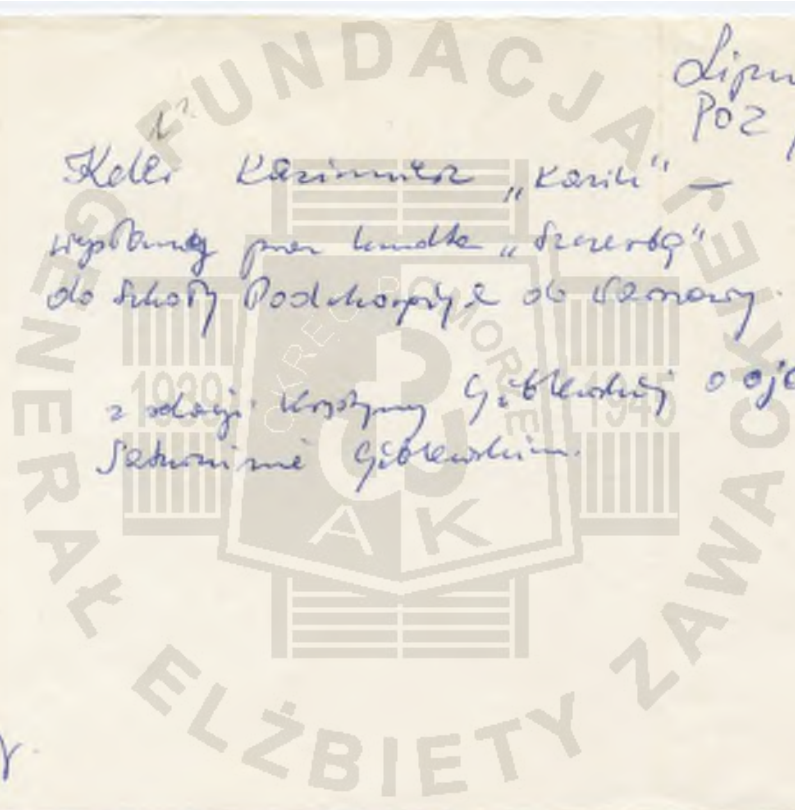 Lipn
POZ
Kazimierz „Kazik" —
wysłany przez „Szczerbę"
do Szkoły Podchorążych do Warszawy.
z relacji Krystyny Giblewskiej o ojc
Saturninie Giblewskim.
FUNDACJA GENERAŁ ELŻBIETY ZAWACKIEJ
OKRĘG POMORZE
1939 1945
AK